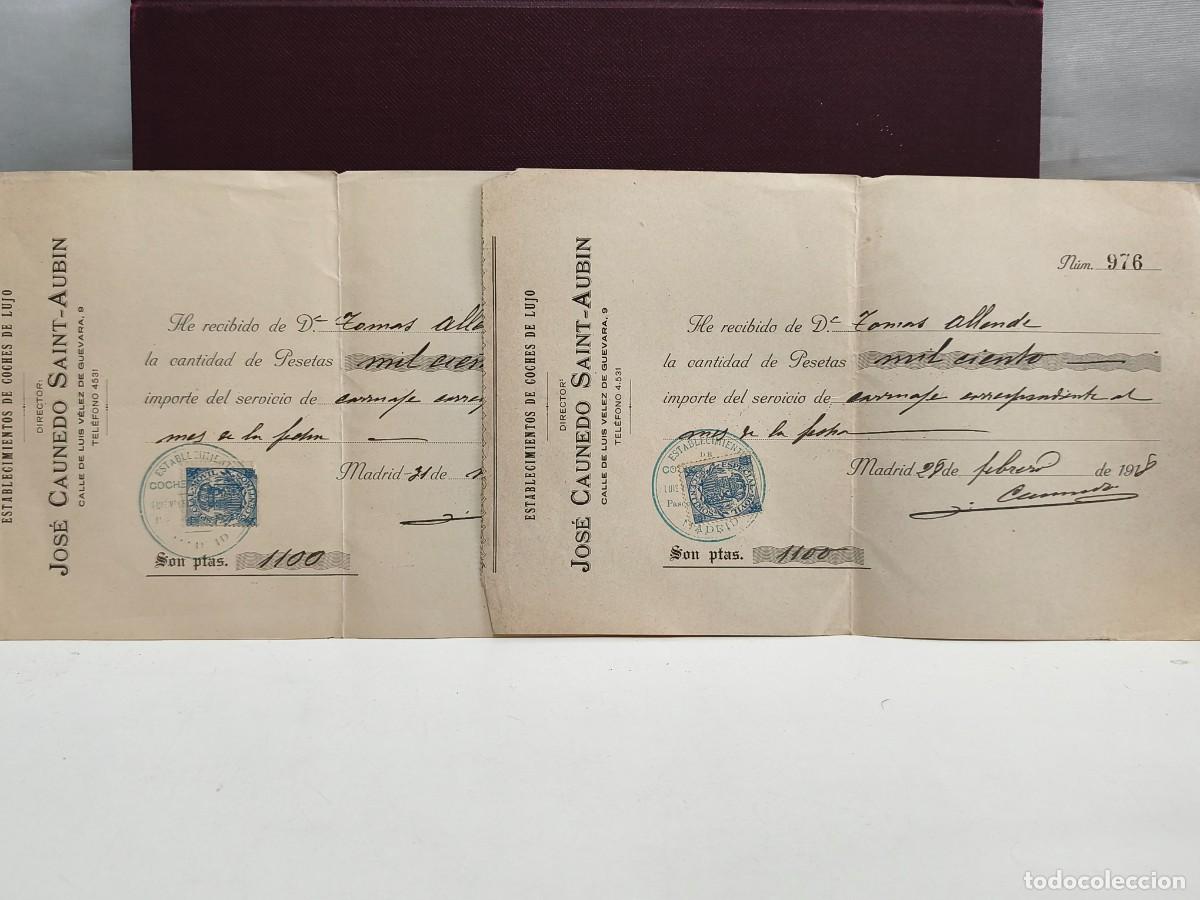 ESTABLECIMIENTOS DE COCHES DE LUJO
DIRECTOR:
JOSÉ CAUNEDO SAINT-AUBIN
CALLE DE LUIS VÉLEZ DE GUEVARA, 9
TELÉFONO 4531
He recibido de D. Tomas Alle
la cantidad de Pesetas mil cien
importe del servicio de carruaje corres
mes de la fecha
Madrid 31 de
ESTABLECIMIENT
COCHE
Son ptas. 1100
ESTABLECIMIENTOS DE COCHES DE LUJO
DIRECTOR:
JOSÉ CAUNEDO SAINT-AUBIN
CALLE DE LUIS VÉLEZ DE GUEVARA, 9
TELÉFONO 4.531
Núm. 976
He recibido de D. Tomas Allende
la cantidad de Pesetas mil ciento
importe del servicio de carruaje correspondiente al
mes de la fecha
Madrid 29 de febrero de 1928
J. Caunedo
ESTABLECIMIENT
DE
CO
ESPECIAL MOVIL
MADRID
Son ptas. 1100
todocoleccion